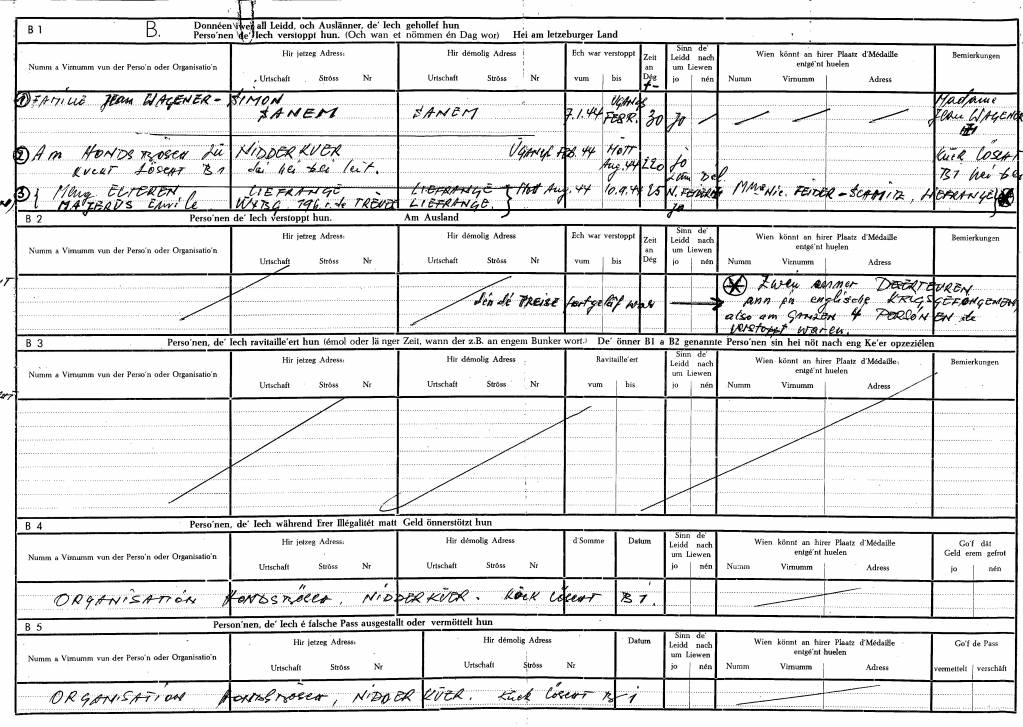 B 1
B.
Donnéen iwer all Leidd, och Auslänner, de' Iech gehollef hun
Perso'nen de' Iech verstoppt hun. (Och wan et nömmen én Dag wor) Hei am letzeburger Land
Numm a Virnumm vun der Perso'n oder Organisatio'n
Hir jetzeg Adress:
Urtschaft Ströss Nr
Hir démolig Adress:
Urtschaft Ströss Nr
Ech war verstoppt
vum bis
Zeit an Dég
Sinn de' Leidd nach um Liewen
jo nén
Wien könnt an hirer Plaatz d'Médaille entgé'nt huelen
Numm Virnumm Adress
Bemierkungen
1 FAMILIE Jean WAGENER - SIMON
SANEM SANEM 7.1.44 UGANGS FEBR. 30 Jo
Madame Jean WAGENER
2 Am HONDSBÖSCH ZU NIDDERKUER UGANGS FEB. 44 MOTT Aug. 44 220 jo
LÖSCHT B1 hei bei
3 Meng ELTEREN LIEFRANGE LIEFRANGE Aug. 44 10.9.44 25 N. FEIDER Mme Nic. FEIDER - SCHMITZ, LIEFRANGE
MAJERUS Emile LIEFRANGE. jo
B 2
Perso'nen de' Iech verstoppt hun. Am Ausland
Numm a Virnumm vun der Perso'n oder Organisatio'n
Hir jetzeg Adress:
Urtschaft Ströss Nr
Hir démolig Adress
Urtschaft Ströss Nr
Ech war verstoppt
vum bis
Zeit an Dég
Sinn de' Leidd nach um Liewen
jo nén
Wien könnt an hirer Plaatz d'Médaille entgé'nt huelen
Numm Virnumm Adress
Bemierkungen
fortgelaf war
Zwein DESERTEUREN
ann en englische KRIGSGEFANGENEN,
also am GANZEN 4 PERSO'NEN de
verstoppt waren.
B 3
Perso'nen, de' Iech ravitaille'ert hun (émol oder länger Zeit, wann der z.B. an engem Bunker wort.) De' önner B1 a B2 genannte Perso'nen sin hei nöt nach eng Ke'er opzeziélen
Numm a Virnumm vun der Perso'n oder Organisatio'n
Hir jetzeg Adress:
Urtschaft Ströss Nr
Hir démolig Adress:
Urtschaft Ströss Nr
Ravitaille'ert
vum bis
Sinn de' Leidd nach um Liewen
jo nén
Wien könnt an hirer Plaatz d'Médaille entgé'nt huelen
Numm Virnumm Adress
Bemierkungen
B 4
Perso'nen, de' Iech während Erer Illégalitét matt Geld önnerstötzt hun
Numm a Virnumm vun der Perso'n oder Organisatio'n
Hir jetzeg Adress:
Urtschaft Ströss Nr
Hir démolig Adress:
Urtschaft Ströss Nr
d'Somme
Datum
Sinn de' Leidd nach um Liewen
jo nén
Wien könnt an hirer Plaatz d'Médaille entgé'nt huelen
Numm Virnumm Adress
Go'f dát Geld erem gefrot
jo nén
ORGANISATION HONDSBÖSCH, NIDDERKUER. KUCK LÖSCHT B 1.
B 5
Person'nen, de' Iech é falsche Pass ausgestallt oder vermöttelt hun
Numm a Virnumm vun der Perso'n oder Organisatio'n
Hir jetzeg Adress:
Urtschaft Ströss Nr
Hir démolig Adress:
Urtschaft Ströss Nr
Datum
Sinn de' Leidd nach um Liewen
jo nén
Wien könnt an hirer Plaatz d'Médaille entgé'nt huelen
Numm Virnumm Adress
Go'f de Pass
vermettelt verschäft
ORGANISATION HONDSBÖSCH, NIDDERKUER. Kuck LÖSCHT B 1